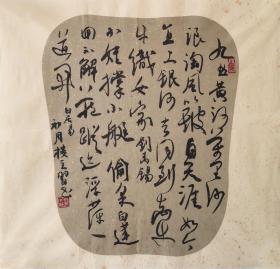 九曲黄河万里沙
浪淘风簸自天涯如今
直上银河去同到牵
牛织女家刘禹锡
小娃撑小艇偷采白莲
回不解藏踪迹浮萍
一道开白居易